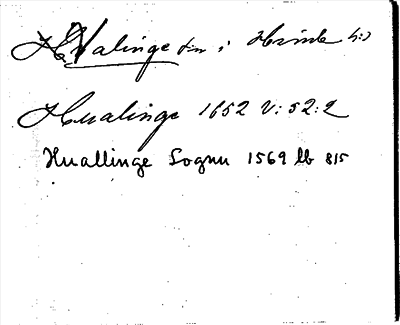 Hvalinge sn i Himle hd
Hualinge 1652 V: 52: 2
Huallinge Sognu 1569 lb 815